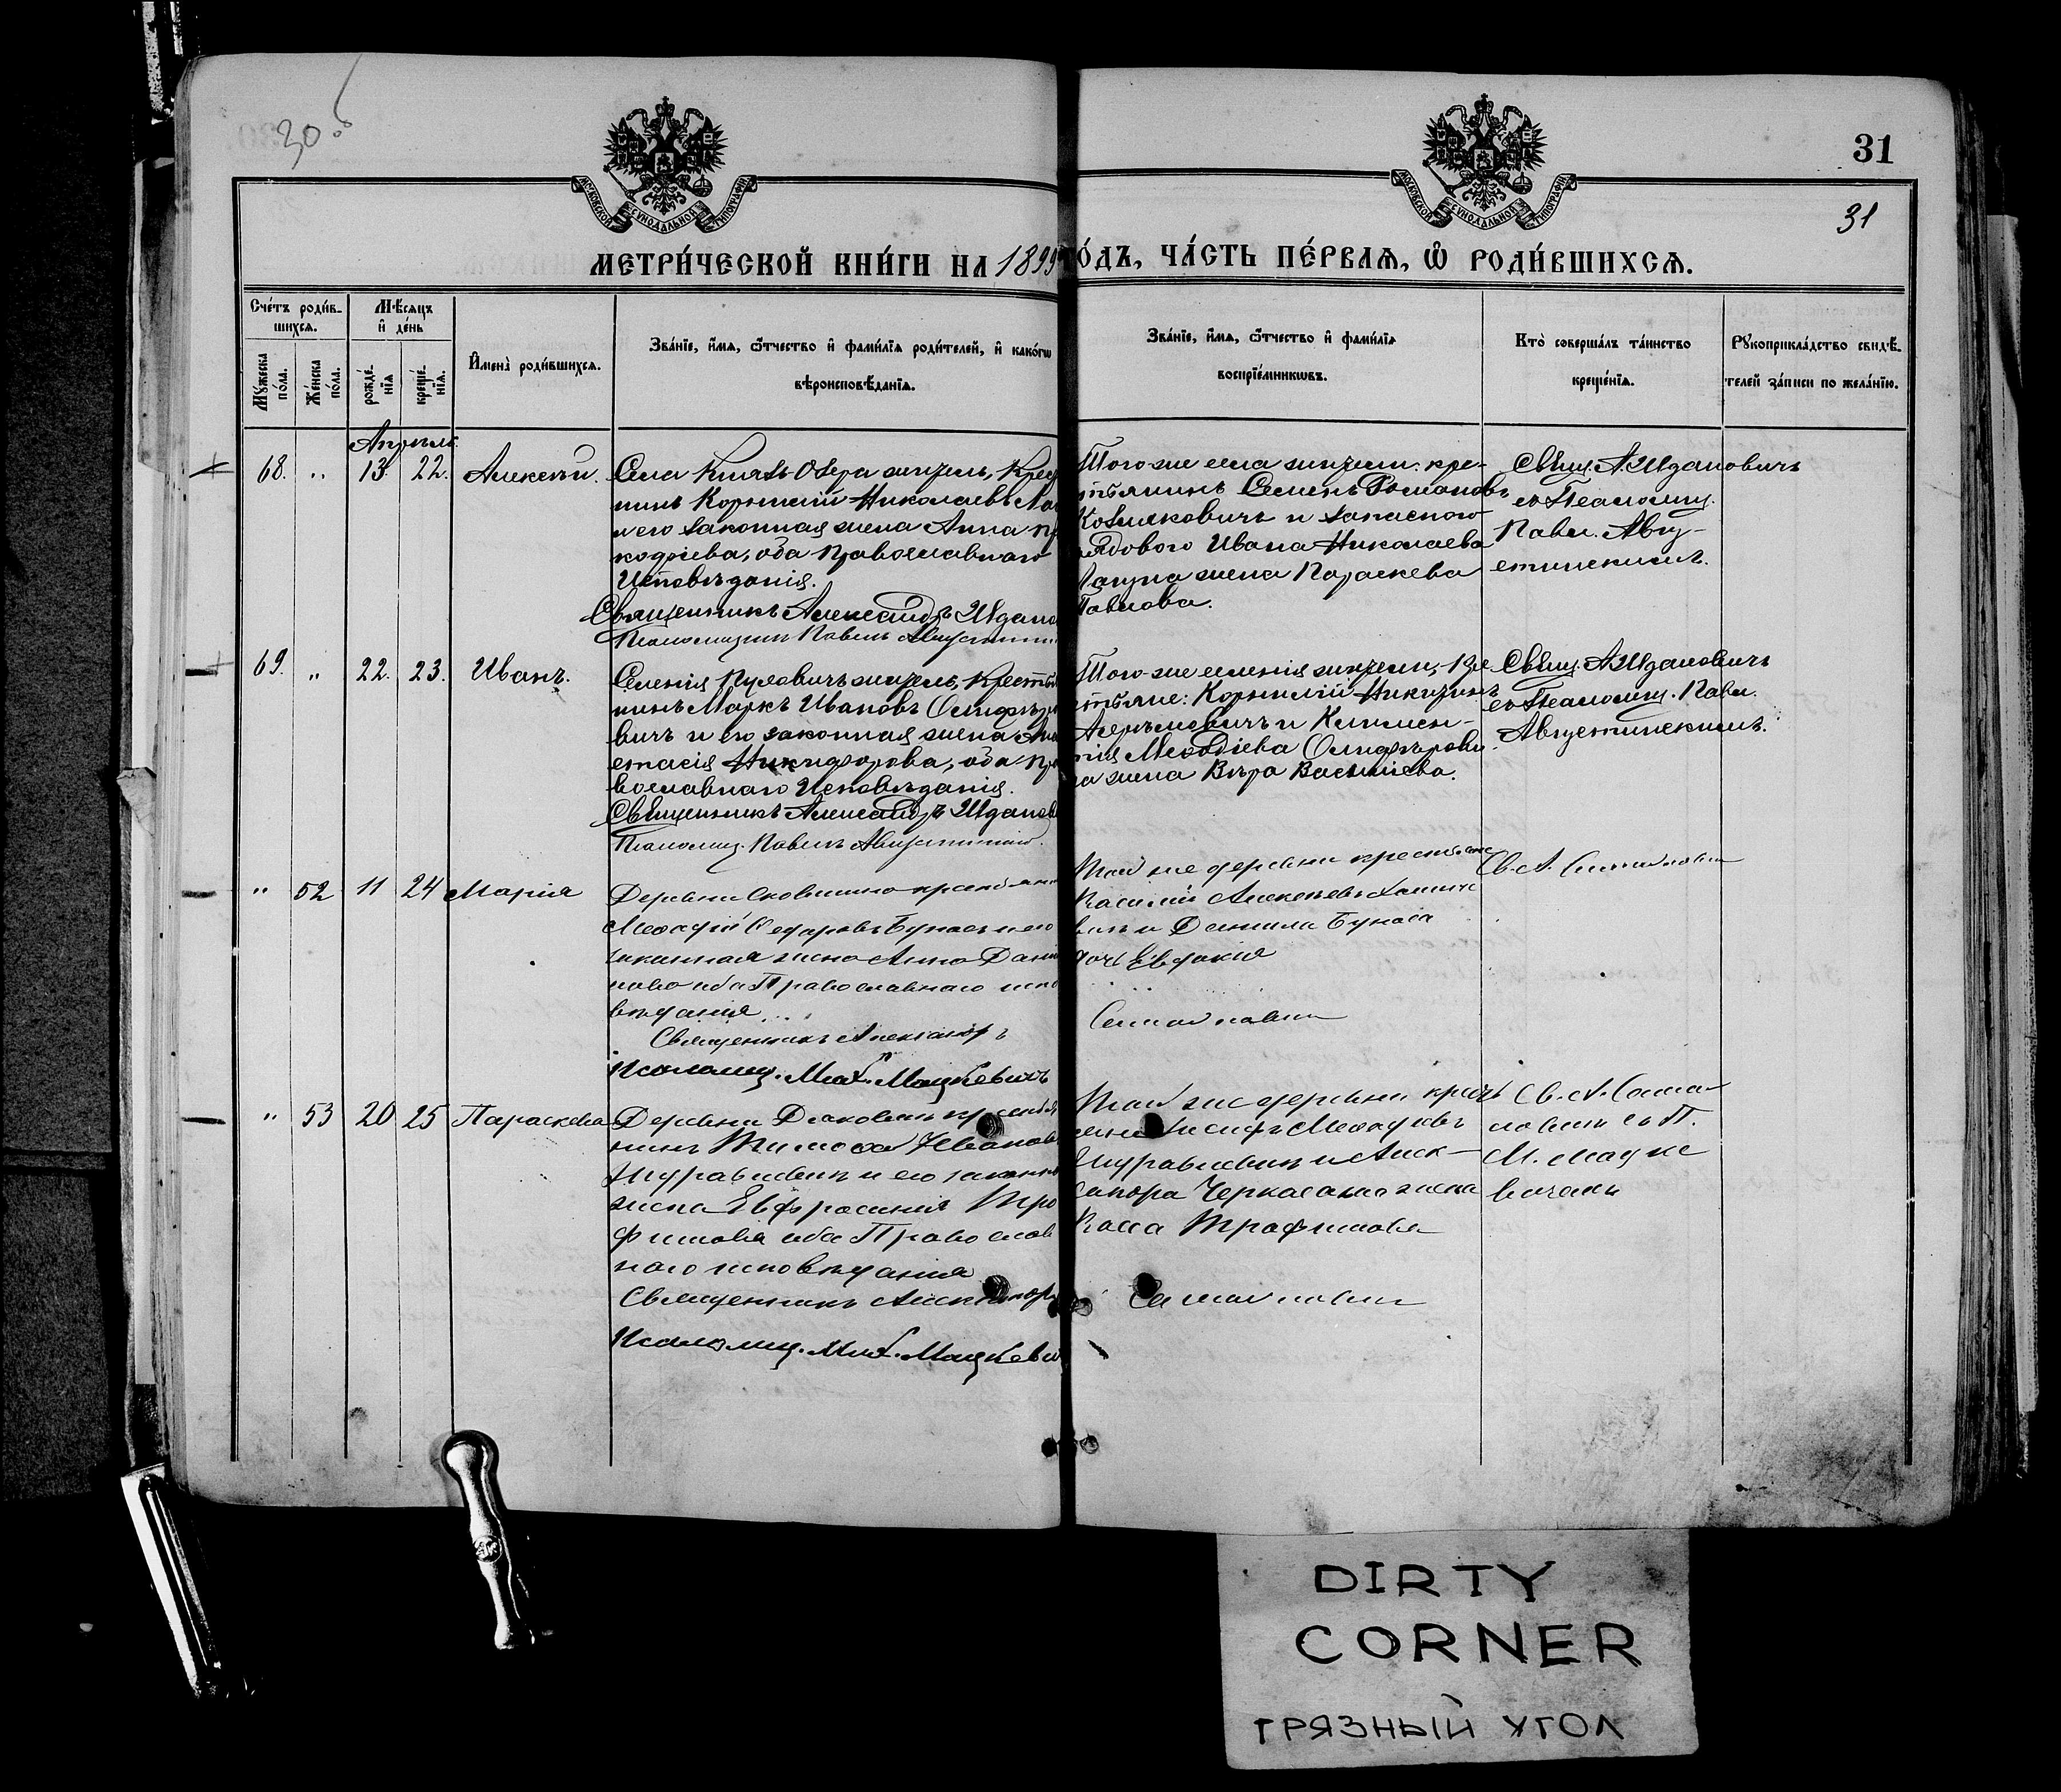 30 об
31
31
МОСКОВСКОЙ СѴНОДАЛЬНОЙ ТИПОГРАФІИ
МОСКОВСКОЙ СѴНОДАЛЬНОЙ ТИПОГРАФІИ
МЕТРИ́ЧЕСКОЙ КНИ́ГИ НА 1899
ГО́ДЪ, ЧА́СТЬ ПЕ́РВАѦ, Ѡ҆ РОДИ́ВШИХСѦ.
Сче́тъ роди́в-
шихсѧ.
Мꙋ́жеска по́ла.
Же́нска по́ла.
Мѣ́сѧцъ
и҆ де́нь
рожде́-
нїѧ
креще́-
нїѧ.
И҆мена̀ роди́вшихсѧ.
Зва́нїе, и҆́мѧ, ѻ҆́тчество и҆ фами́лїѧ роди́телей, и҆ како́гѡ
вѣроисповѣ́данїѧ.
Зва́нїе, и҆́мѧ, ѻ҆́тчество и҆ фами́лїѧ
воспрїе́мникѡвъ.
Кто̀ соверша́лъ та́инство
креще́нїѧ.
Рꙋкоприкла́дство свидѣ́-
телей за́писи по жела́нїю.
Апрѣль
68. „ 13. 22. Алексѣй.
Села Князь-Озера житель, Крест
нинъ Корнилій Николаевъ
и его законная жена Анна
кодіева, оба Православнаго
Исповѣданія.
Священникъ Александръ Ждано
Псаломщикъ Павелъ Августин
Того же села жители: кре-
стьянинъ Семенъ Романовъ
Козляковичъ и запаснаго
рядового Ивана Николаева
жена Параскева
Павлова.
Свящ. А. Ждановичъ
съ Псаломщ.
Павл. Авгу-
стинскимъ.
69. „ 22. 23. Иванъ.
Селенія житель, Крестья
нинъ Маркъ Ивановъ
вичъ и его законная жена Ана
стасія Никифорова, оба Пра
вославнаго Исповѣданія.
Священникъ Александръ Жданов
Псаломщ. Павелъ Августинскій.
Того же селенія жители, Кре
стьяне: Корнилій Никитинъ
и Климен-
тія Меѳодіева
ча жена Вѣра Васильева.
Свящ. А. Ждановичъ
съ Псаломщ. Павл.
Августинскимъ.
„ 52 11 24 Марія
Деревни крестьянинъ
Меѳодій Ѳедоровъ Букасъ и его
законная жена Анна Дани
лова оба Православнаго испо
вѣданія
Священникъ Александръ
Псаломщ. Мих. Мацкевичъ
Той же деревни крестьяне
Василій Алексѣевъ
вичъ и Данила Букаса
дочь Евдокія
Св. А.
„ 53 20 25 Параскева
Деревни крестья
нинъ Тимоѳей Иванов
Журавлевичъ и его законная
жена Евфросинія Тро
фимова оба Православ
наго исповѣданія
Священникъ Александръ
Псаломщ. Мих. Мацкеви
Той же деревни кресть
яне Іосифъ Меѳодіевъ
Журавлевичъ и Алек-
сандра Черкасаго жена
Васса Трофимова
Св. А.
съ П.
М. Мацке
вичемъ
DIRTY
CORNER
ГРЯЗНЫЙ УГОЛ